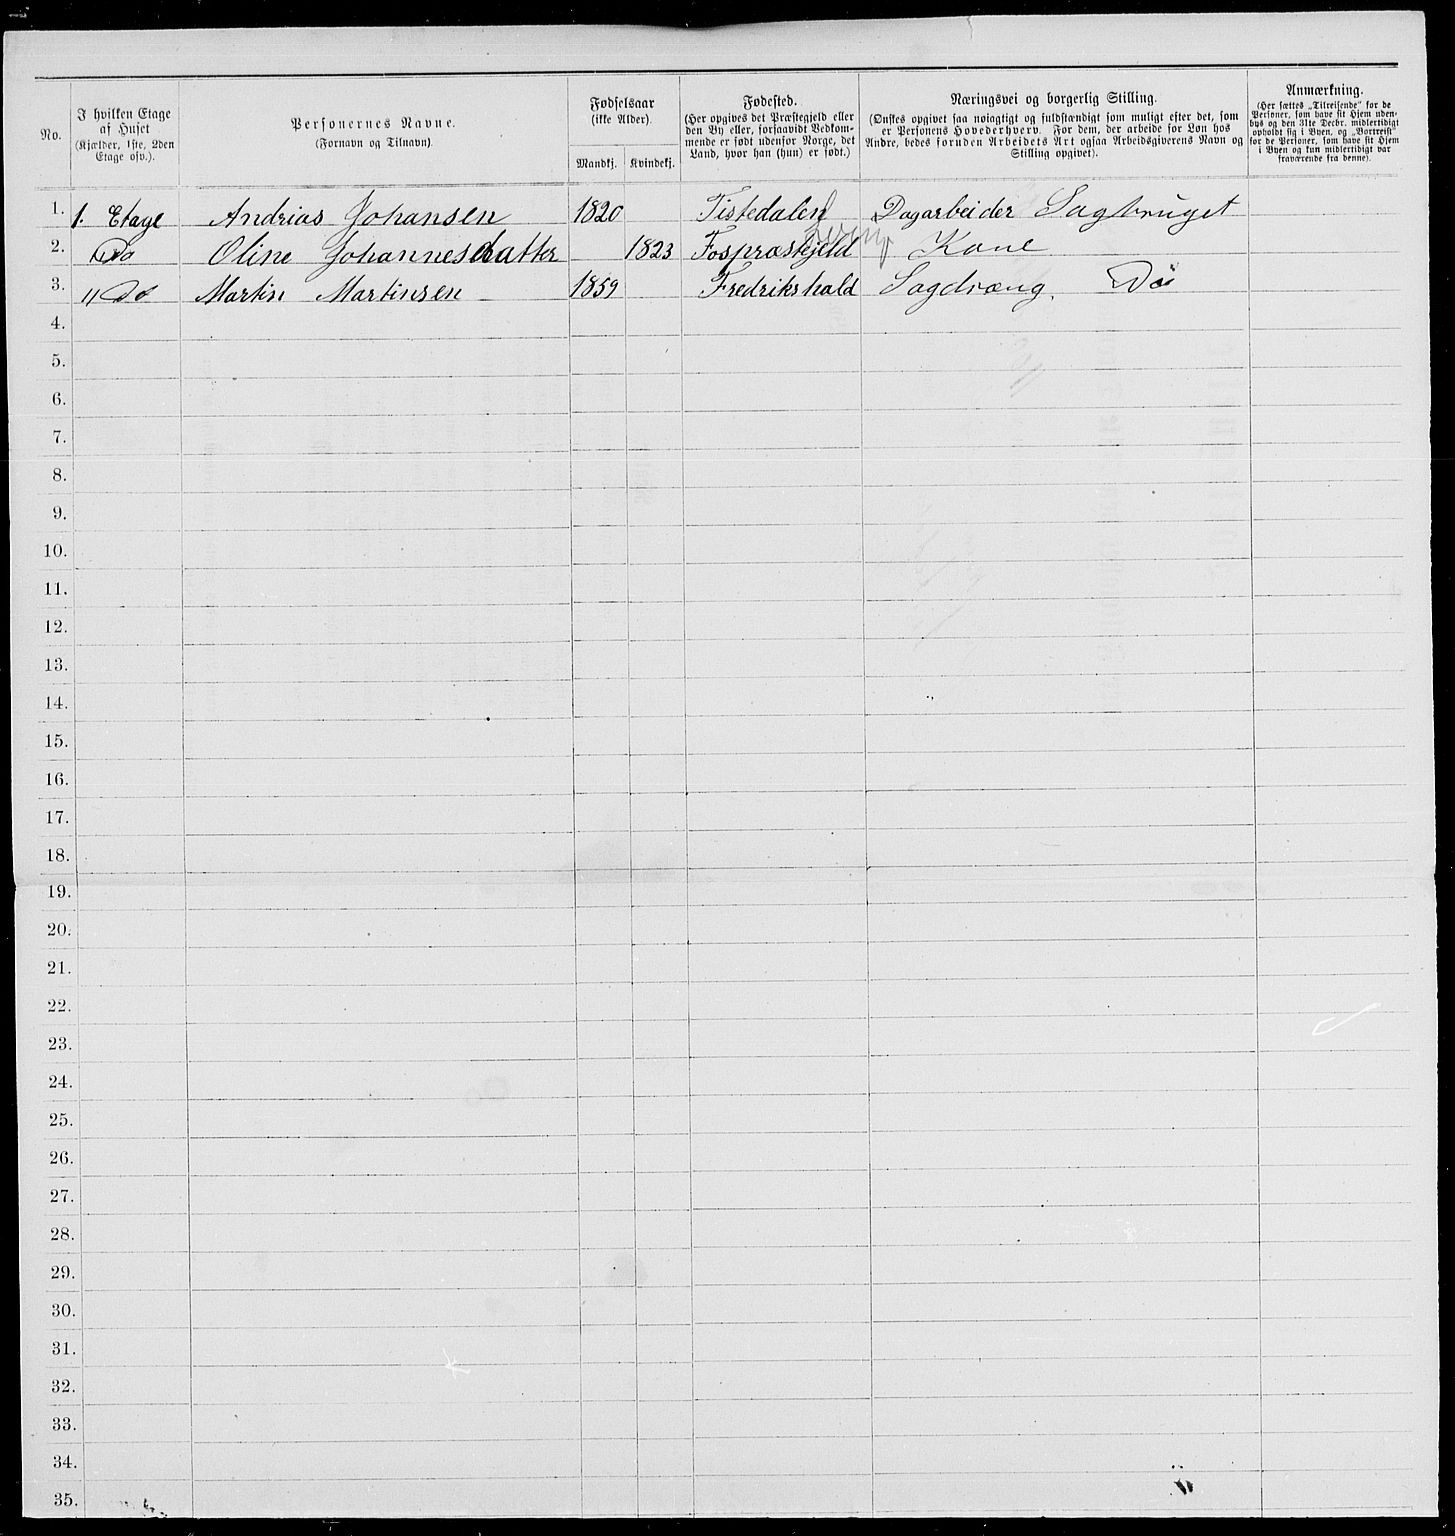 No.
I hvilken Etage af Huset
(Kjælder, 1ste, 2den Etage osv.).
Personernes Navne.
(Fornavn og Tilnavn).
Fødselsaar
(ikke Alder).
Mandkj.
Kvindekj.
Fødested.
(Her opgives det Præstegjeld eller
den By eller, forsaavidt Vedkom-
mende er født udenfor Norge, det
Land, hvor han (hun) er født.)
Næringsvei og borgerlig Stilling.
(Ønskes opgivet saa nøiagtigt og fuldstændigt som muligt efter det, som
er Personens Hovederhverv. For dem, der arbeide for Løn hos
Andre, bedes foruden Arbeidets Art ogsaa Arbeidsgiverens Navn og
Stilling opgivet).
Anmærkning.
(Her sættes „Tilreisende" for de
Personer, som have sit Hjem uden-
bys og den 31te Decbr. midlertidigt
opholdt sig i Byen, og „Bortreist"
for de Personer, som have sit Hjem
i Byen og kun midlertidigt var
fraværende fra denne).
1. 1. Etage Andrias Johansen 1820 Tistedalen Dagarbeider Sagbruget
2. Do Oline Johannesdatter 1823 Fospræstejeld Kone
3. " Do Martin Martinsen 1859 Fredrikshald Sagdræng. Do
4.
5.
6.
7.
8.
9.
10.
11.
12.
13.
14.
15.
16.
17.
18.
19.
20.
21.
22.
23.
24.
25.
26.
27.
28.
29.
30.
31.
32.
33.
34.
35.